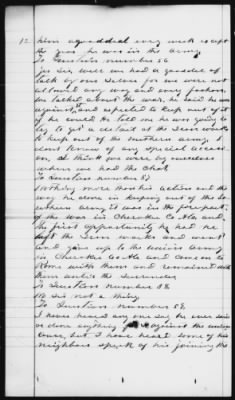 12 him a good deal every week except
the year he was in the Army
To Question number 56
Yes Sir well we had a good deal of
talk by our Selves for we were not
allowed any way and every fashion
we talked about the war, he said he was
against it and expected to keep out of it
if he could He told me he was going to
try to get a detail at the Iron works
to keep out of the Southern army, I
dont know of any special occas
ion, I think we were by ourselves
where we had the Chat
To Question number 57
Nothing more than his action and the
way he done in keeping out of the So
uthern Army it was in the forepart
of the war in Cherokee Co Ala and,
the first opportunity he had he
left the Iron works and went
and give up to the union Army
in Cherokee Co Ala and come on to
Rome with them and remained with
them until the Surrender
To Question number 58
No Sir not a thing
To Question number 59
I never heard any one say he ever said
or done anything against the union
Cause, but I have heard some of his
neighbors speak of his joining the